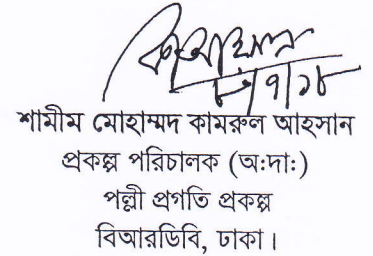 ৮/৭/১৮
শামীম মোহাম্মদ কামরুল আহসান
প্রকল্প পরিচালক (অ:দা:)
পল্লী প্রগতি প্রকল্প
বিআরডিবি, ঢাকা।